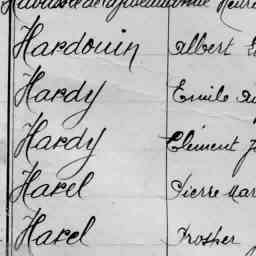 Hardouin Albert
Hardy Emile
Hardy Clément
Harel Pierre Mar
Harel Prosper